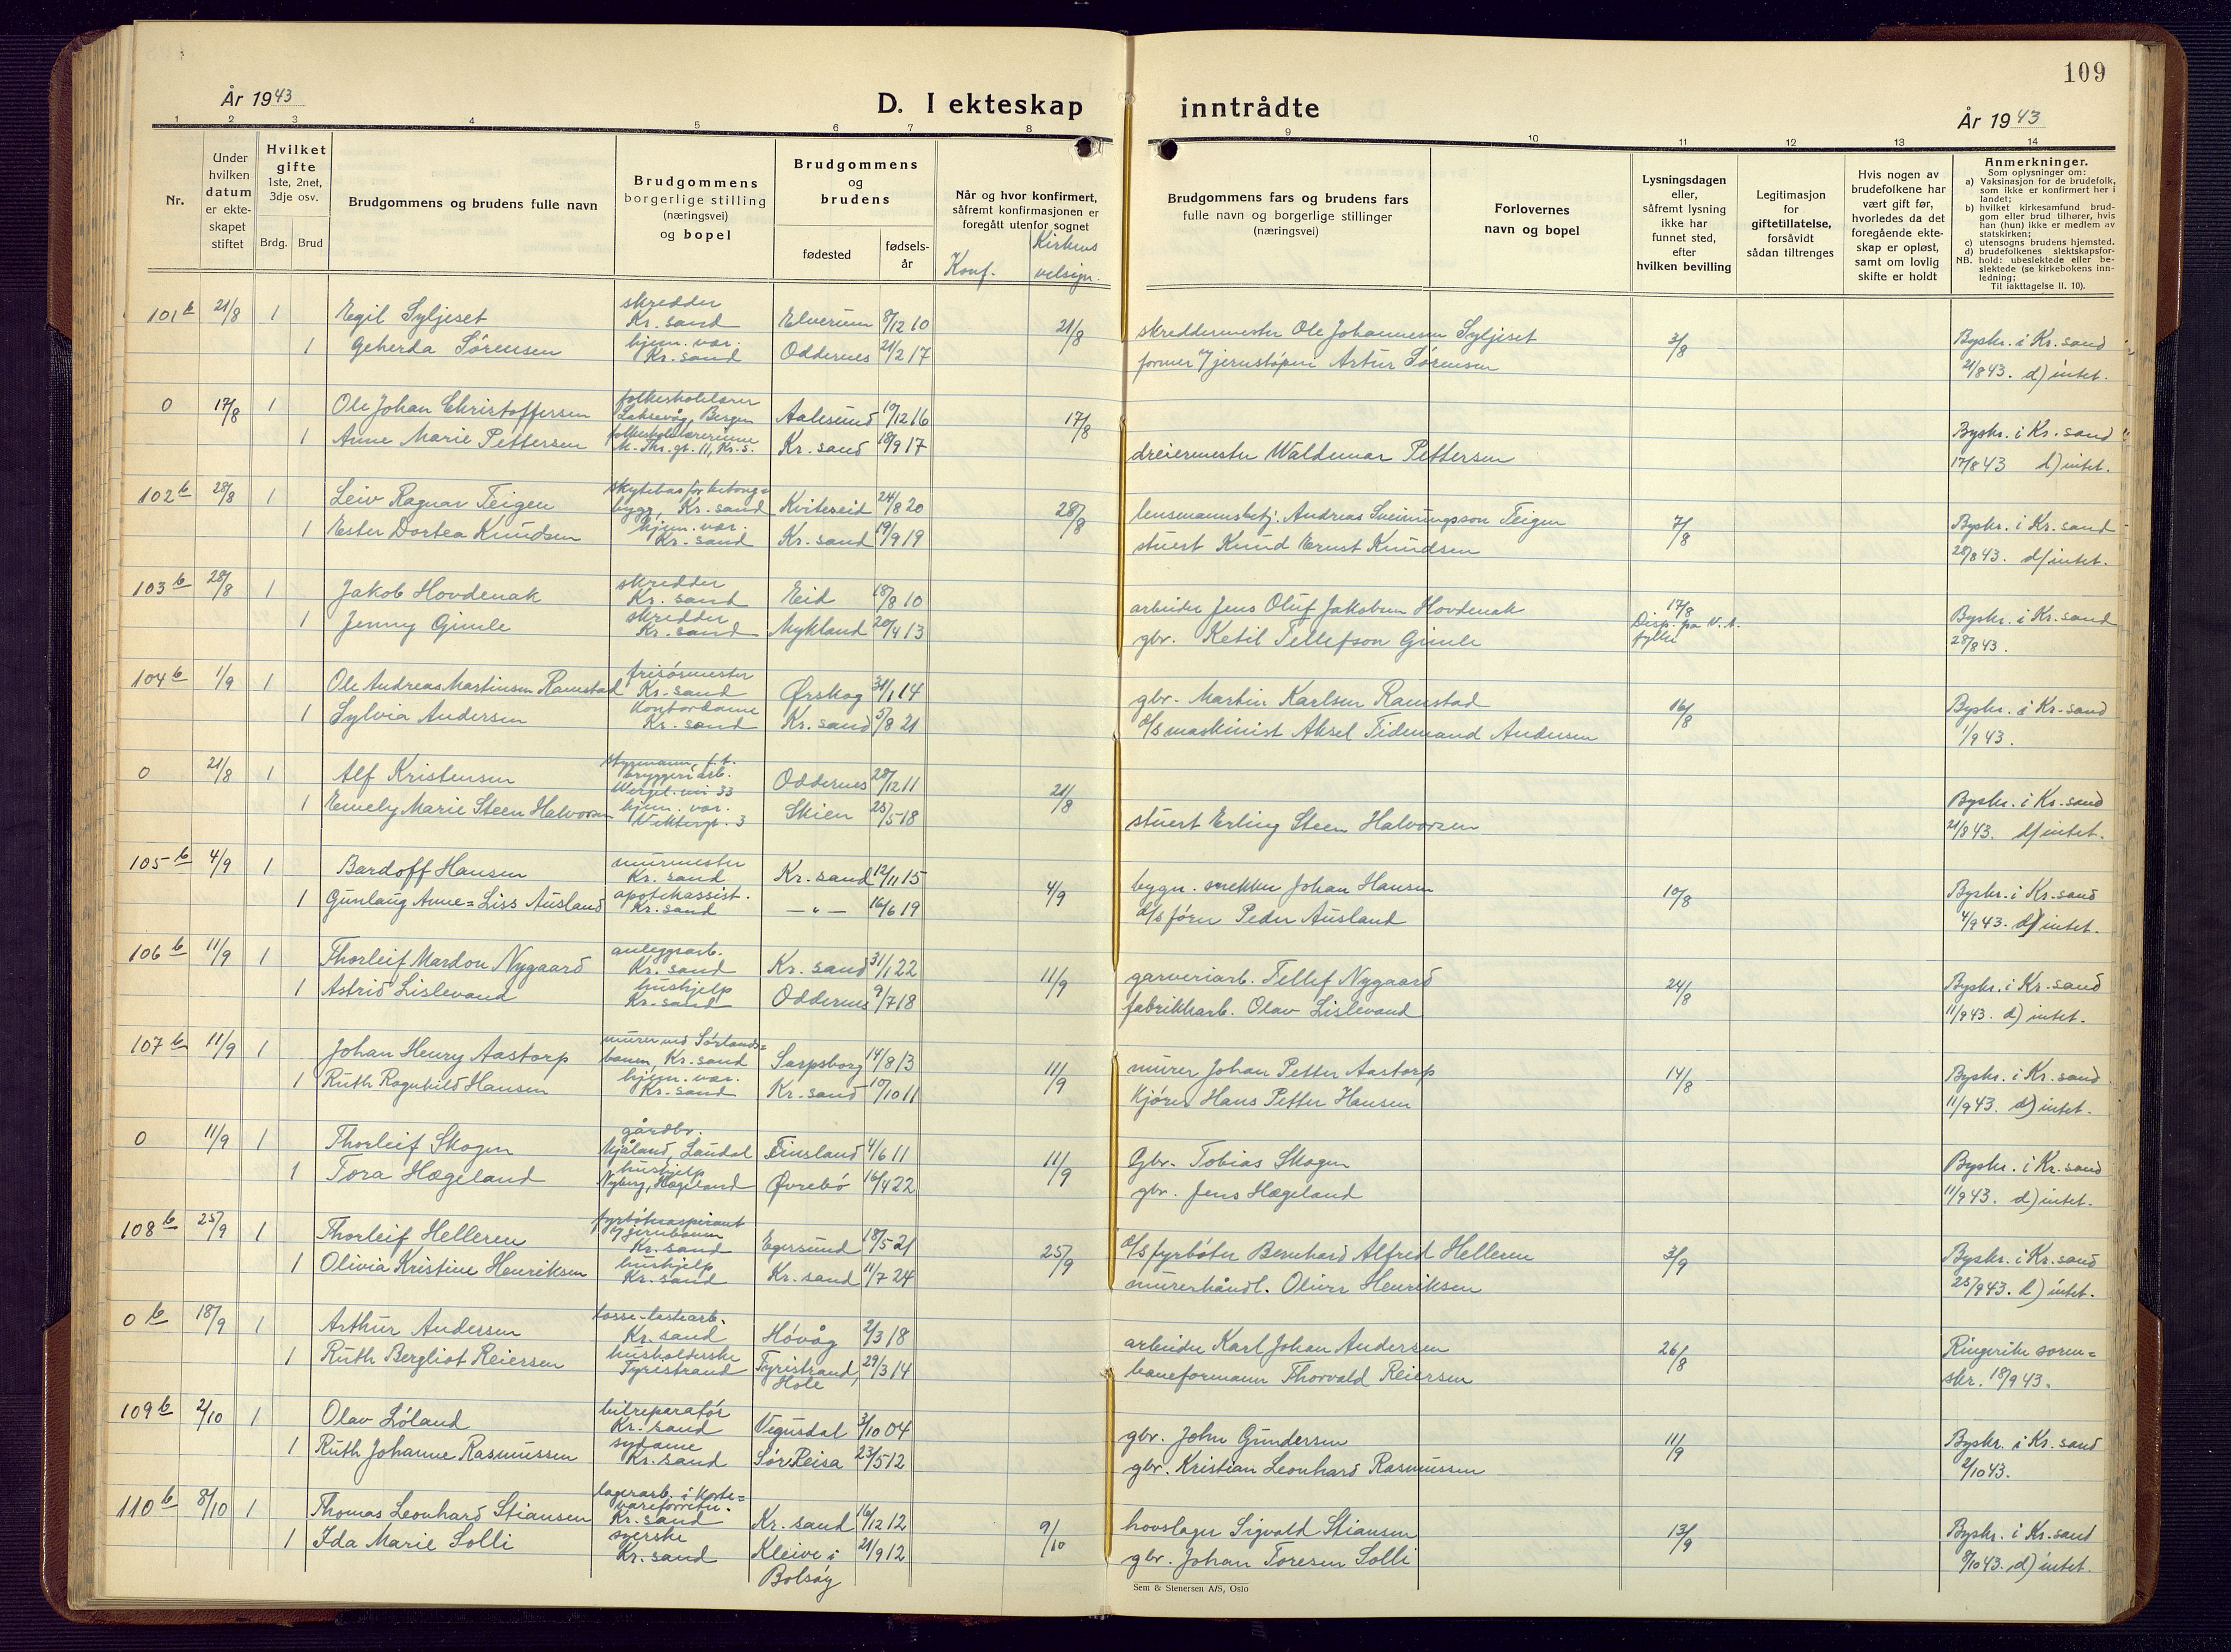 109
År 1943
D. I ekteskap inntrådte
År 1943
1 2 3 4 5 6 7 8 9 10 11 12 13 14
Nr.
Under hvilken datum er ekte-skapet stiftet
Hvilket gifte 1ste, 2net, 3dje osv.
Brdg. Brud
Brudgommens og brudens fulle navn
Brudgommens borgerlige stilling (næringsvei) og bopel
Brudgommens og brudens
fødested
fødsels-år
Når og hvor konfirmert, såfremt konfirmasjonen er foregått utenfor sognet
Konf. Kirkens velsign.
Brudgommens fars og brudens fars fulle navn og borgerlige stillinger (næringsvei)
Forlovernes navn og bopel
Lysningsdagen eller, såfremt lysning ikke har funnet sted, efter hvilken bevilling
Legitimasjon for giftetillatelse, forsåvidt sådan tiltrenges
Hvis nogen av brudefolkene har vært gift før, hvorledes da det foregående ekte-skap er opløst, samt om lovlig skifte er holdt
Anmerkninger.
Som oplysninger om:
a) Vaksinasjon for de brudefolk, som ikke er konfirmert her i landet;
b) hvilket kirkesamfund brud-gom eller brud tilhører, hvis han (hun) ikke er medlem av statskirken;
c) utensogns brudens hjemsted.
d) brudefolkenes slektskapsfor-hold: ubeslektede eller be-slektede (se kirkebokens inn-ledning;
NB. Til iakttagelse II. 10).
101 b 21/8 1 Egil Syljeset skredder Kr. sand Elverum 8/12 10 21/8 skreddermester Ole Johannesen Syljeset 3/8 Byskr. i Kr. sand
1 Geherda Sørensen hjem. var. Kr. sand Oddernes 21/2 17 former v/ jernstøperi Artur Sørensen 21/8 43. d) intet.
0 17/8 1 Ole Johan Christoffersen folkeskolelærer Laksevåg, Bergen Aalesund 19/12 16 17/8 Byskr. i Kr. sand
1 Anne Marie Pettersen folkeskolelærerinne M. Thr. gt. 11, Kr. s. Kr. sand 18/9 17 dreiermester Waldemar Pettersen 17/8 43 d) intet.
102 b 28/8 1 Leiv Ragnar Teigen skytebas for betong= bygg, Kr. sand Kviteseid 24/8 20 28/8 lensmannsbetj. Andreas Sveinungsson Teigen 7/8 Byskr. i Kr. sand
1 Ester Dortea Knudsen hjem. var. Kr. sand Kr. sand 19/9 19 stuert Knud Ernst Knudsen 28/8 43. d) intet.
103 b 28/8 1 Jakob Hovdenak skredder Kr. sand Eid 18/8 10 arbeider Jens Oluf Jakobsen Hovdenak 17/8 Byskr. i Kr. sand
1 Jenny Gimle skredder Kr. sand Mykland 20/4 13 gbr. Ketil Tellefson Gimle Disp. fra V. A. fylke 28/8 43.
104 b 1/9 1 Ole Andreas Martinsen Ramstad frisørmester Kr. sand Ørskog 31/1 14 gbr. Martin Karlsen Ramstad 16/8 Byskr. i Kr. sand
1 Sylvia Andersen Kontordame Kr. sand Kr. sand 5/8 21 d/s maskinist Aksel Tidemand Andersen 1/9 43.
0 21/8 1 Alf Kristensen styrmann, f.t. bryggeriarb. Wergel. vei 33 Oddernes 28/12 11 21/8 Byskr. i Kr. sand
1 Emely Marie Steen Halvorsen hjem. var. Vestergt. 3 Skien 25/5 18 stuert Erling Steen Halvorsen 21/8 43. d) intet.
105 b 4/9 1 Bardoff Hansen murmester Kr. sand Kr. sand 12/11 15 4/9 bygn. snekker Johan Hansen 10/8 Byskr. i Kr. sand
1 Gunlaug Anne=Liss Ausland apotekassist. Kr. sand — " — 16/6 19 d/s fører Peder Ausland 4/9 43. d) intet.
106 b 11/9 1 Thorleif Mardon Nygaard anleggsarb. Kr. sand Kr. sand 31/1 22 11/9 garveriarb. Tellef Nygaard 24/8 Byskr. i Kr. sand
1 Astrid Lislevand hushjelp Kr. sand Oddernes 9/7 18 fabrikkarb. Olav Lislevand 11/9 43. d) intet.
107 b 11/9 1 Johan Henry Aastorp murer ved Sørlands= banen, Kr. sand Sarpsborg 14/8 13 11/9 murer Johan Petter Aastorp 14/8 Byskr. i Kr. sand
1 Ruth Ragnhild Hansen hjem. var. Kr. sand Kr. sand 10/10 11 Kjører Hans Petter Hansen 11/9 43. d) intet.
0 11/9 1 Thorleif Skogen gårdbr. Mjåland, Laudal Finsland 4/6 11 11/9 Gbr. Tobias Skogen Byskr. i Kr. sand
1 Tora Hægeland hushjelp Nyberg, Hægeland Øvrebø 16/4 22 gbr. Jens Hægeland 11/9 43. d) intet.
108 b 25/9 1 Thorleif Helleren fyrbøteraspirant v/ jernbanen Kr. sand Egersund 18/5 21 25/9 d/s fyrbøter Bernhard Alfred Helleren 3/9 Byskr. i Kr. sand
1 Olivia Kristine Henriksen hushjelp Kr. sand Kr. sand 11/7 24 murerhåndl. Oliver Henriksen 25/9 43. d) intet.
0 b 18/9 1 Arthur Andersen losse-lastearb. Kr. sand Høvåg 2/3 18 arbeider Karl Johan Andersen 26/8 Ringerike soren=
1 Ruth Bergliot Reiersen husholderske Tyristrand Tyristrand, Hole 29/3 14 baneformann Thorvald Reiersen skr. 18/9 43.
109 b 2/10 1 Olav Löland bilreparatør Kr. sand Vegusdal 3/10 04 gbr. John Gundersen 11/9 Byskr. i Kr. sand
1 Ruth Johanne Rasmussen sydame Kr. sand Sør Reisa 23/5 12 gbr. Kristian Leonhard Rasmussen 2/10 43.
110 b 8/10 1 Thomas Leonhard Stiansen lagerarb. i korte= vareforretn. Kr. sand Kr. sand 16/12 12 9/10 hovslager Sigvald Stiansen 13/9 Byskr. i Kr. sand
1 Ida Marie Solli syerske Kr. sand Kleive i Bolsøy 21/9 12 gbr. Johan Toresen Solli 8/10 43. d) intet.
Sem & Stenersen A/S, Oslo